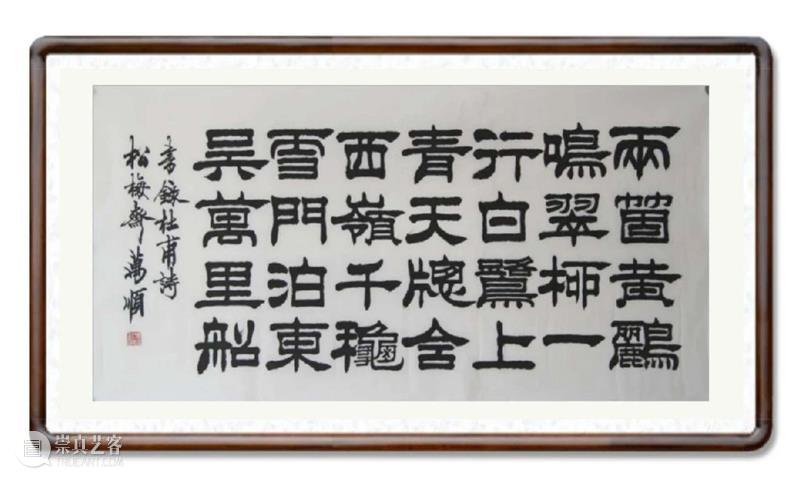 兩箇黄鸝
鳴翠柳一
行白鷺上
青天牕含
西嶺千龝
雪門泊東
吳萬里船
書錄杜甫詩
松梅齋萬順
崇真艺客
TRUEART.COM